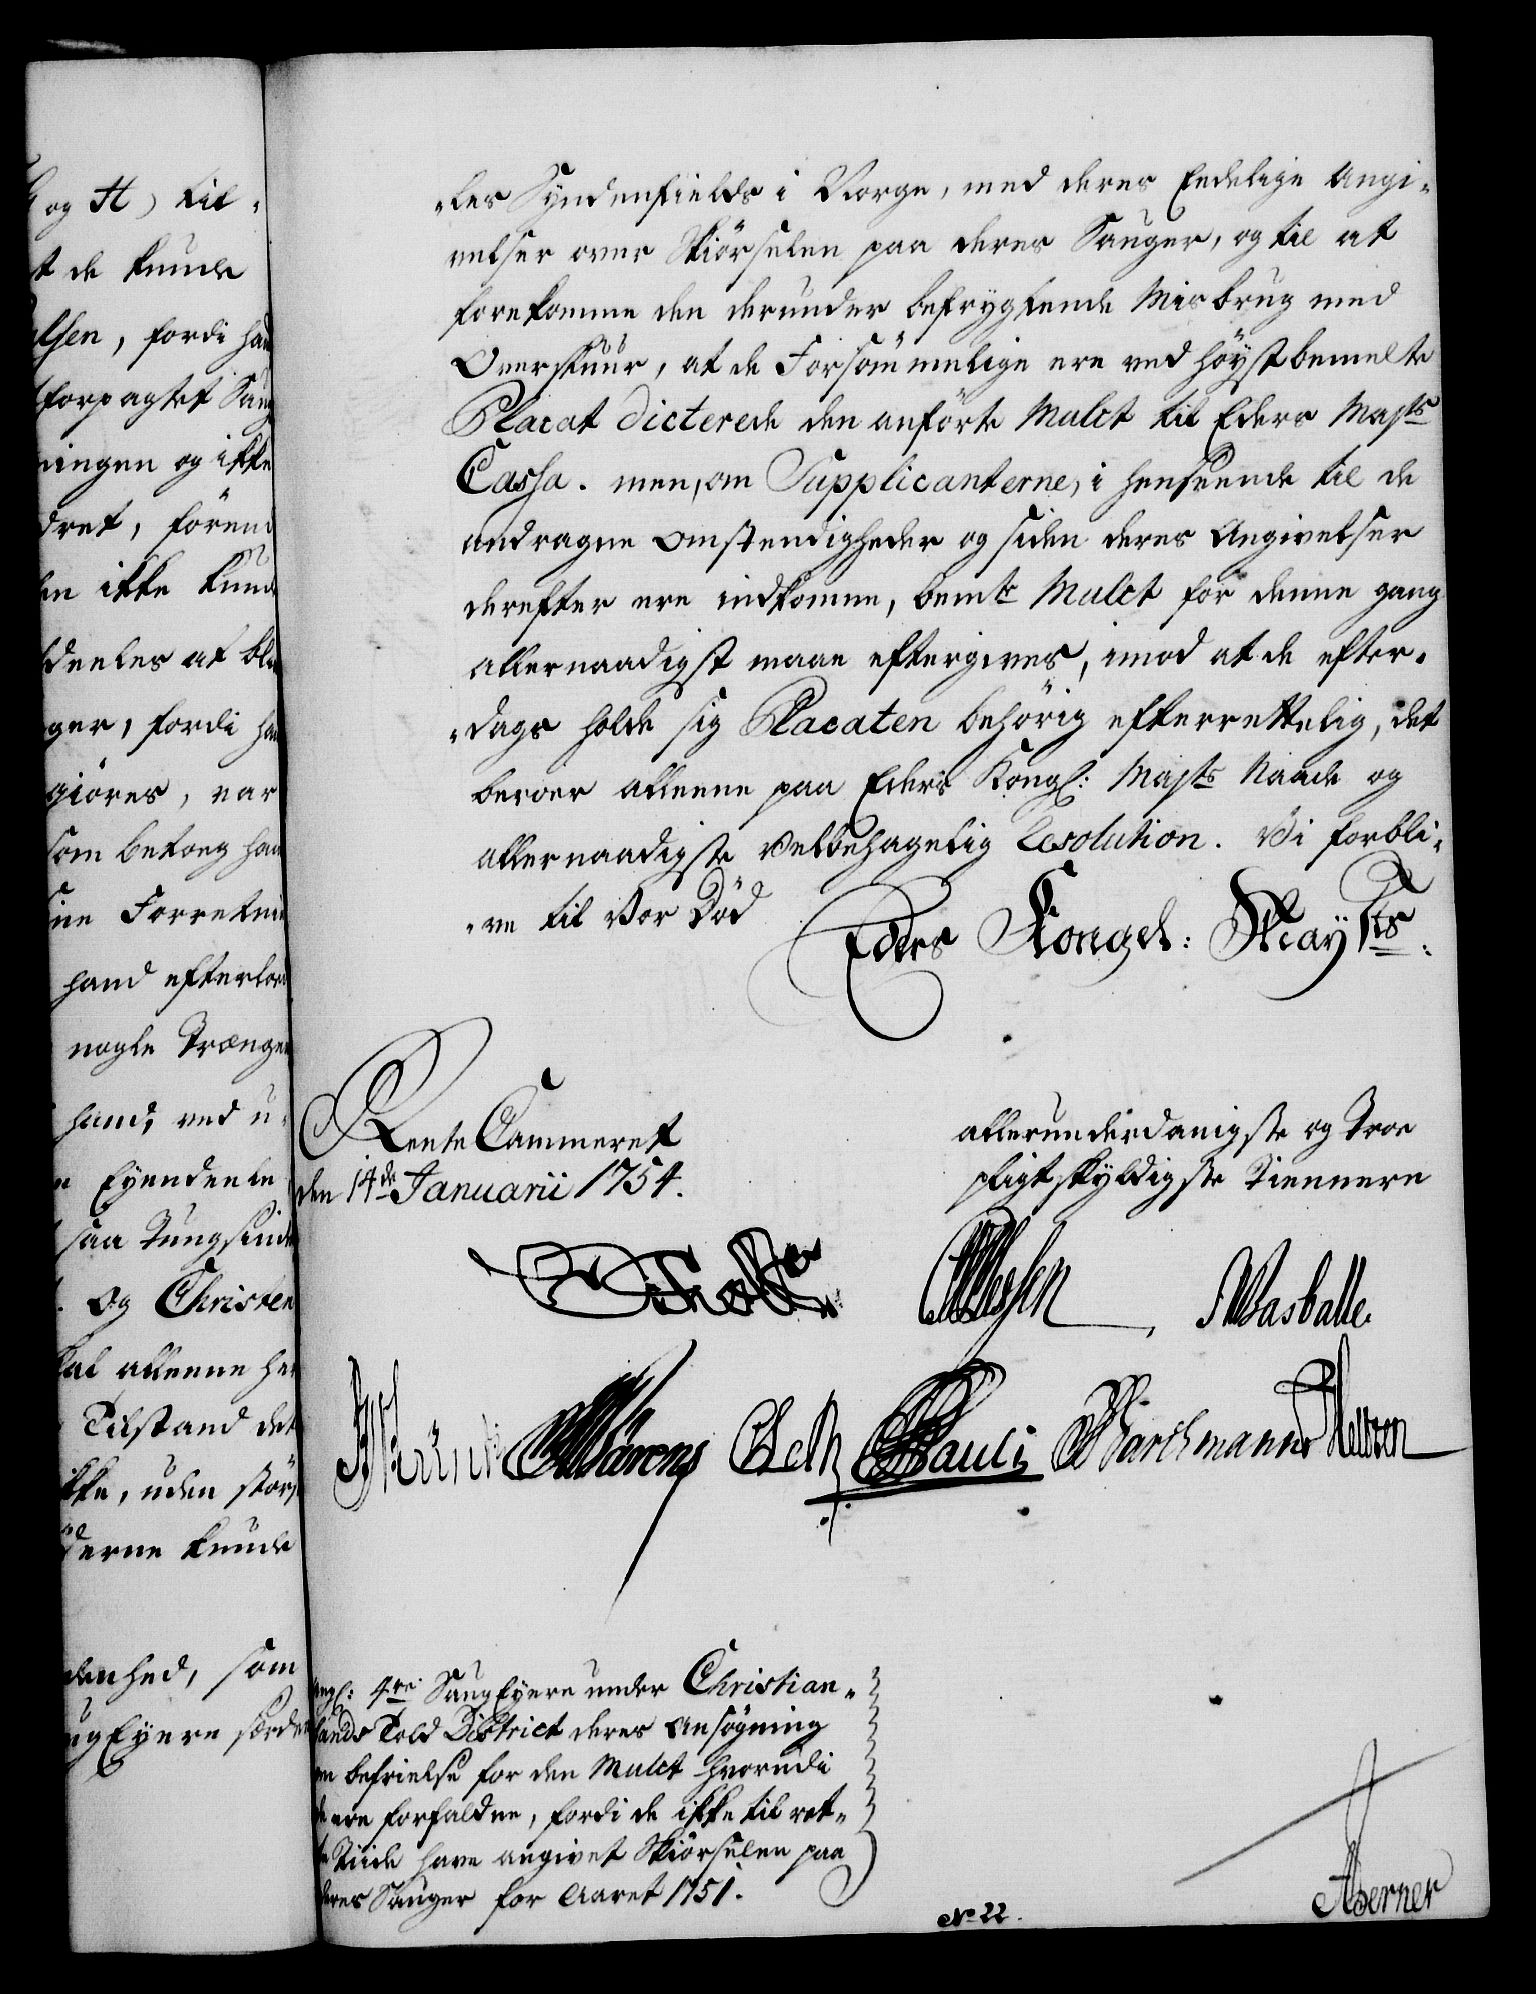 og H) til-
t de kunde
lsen, fordi han
forpagtet Saug
ningen og ikke
dret, förend
en ikke kund
deeles at bli
ger, fordi han
giöres, var
som betoeg ham
sine Forretni
hand efterlod
nogle Trænge
hand, ved u-
Eyendeele
saa Tungsind
. Og Christen
tal alleene her
Tilstand det
ikke, uden stör
derne kunde
denhed, som
ugEyere særde
-les Syndenfields i Norge, med deres Eedelige Angi-
velser over Skiörselen paa deres Sauger, og til at
forekomme den derunder befrygtende Misbrug med
Overskuur, at de Forsömmelige ere ved höystbemelte
Placat Dicterede den anförte Mulct til Eders Majts
Cassa. men, om Supplicanterne, i henseende til de
andragne Omstendigheder og siden deres Angivelser
derefter ere indkomne, bemte Mulct for denne gang
allernaadigst maae eftergives, imod at de efter-
-dags holde sig Placaten behörig efterrettelig, det
beroer alleene paa Eders Kongl: Majts Naade og
allernaadigste Velbehagelig Resolution. Vi forbli-
-ve til Vor Död
Eders Kongel: Mayts.
Rente Cammeret
den 14de Januarii 1754.
allerunderdanigste og Troe
pligtskyldigste Tiennere
Holst
JWasballe.
Pauli Barchmann
ang: 4re SaugEyere under Christian-
sands Told District deres Ansögning
om befrielse for den Mulct hvorudi
de ere forfaldne, fordi de ikke til ret-
te Tiide have angivet Skiörselen paa
deres Sauger for Aaret 1751.
No 22.
ABerner